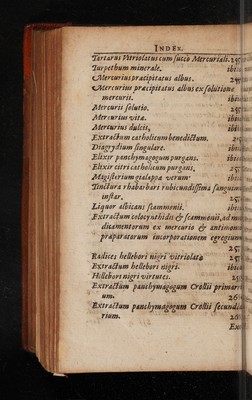 INDEX.
Tartarus Vitriolatus cum succo Mercuriali. 25
Turpethum minerale. ibid
Mercurius præcipitatus albus. 25
Mercurius præcipitatus albus ex solutione
mercurii. ibid
Mercurii solutio. 25
Mercurius vitæ. ibid
Mercurius dulcis, ibid
Extractum catholicum benedictum. 25
Diagrydium singulare. ibid
Elixir panchymagogum purgans. ibid
Elixir citri catholicum purgans, 25
Magisterium gialappæ verum ibid
Tinctura rhabarbari rubicundissima sanguinis
instar. 257
Liquor albicans scammonii. ibid
Extractum colocynthidis & scammonii, ad me
dicamentorum ex mercurio & antimonio
præparatorum incorporationem egregium
257
Radices hellebori nigri vitriolatæ 25
Extractum hellebori nigri. ibid
Hellebori nigri virtutes. 25
Extractum panchymagogum Crollii primari
um. 26
Extractum panchymagogum Crollii secunda
rium. 26
Ext